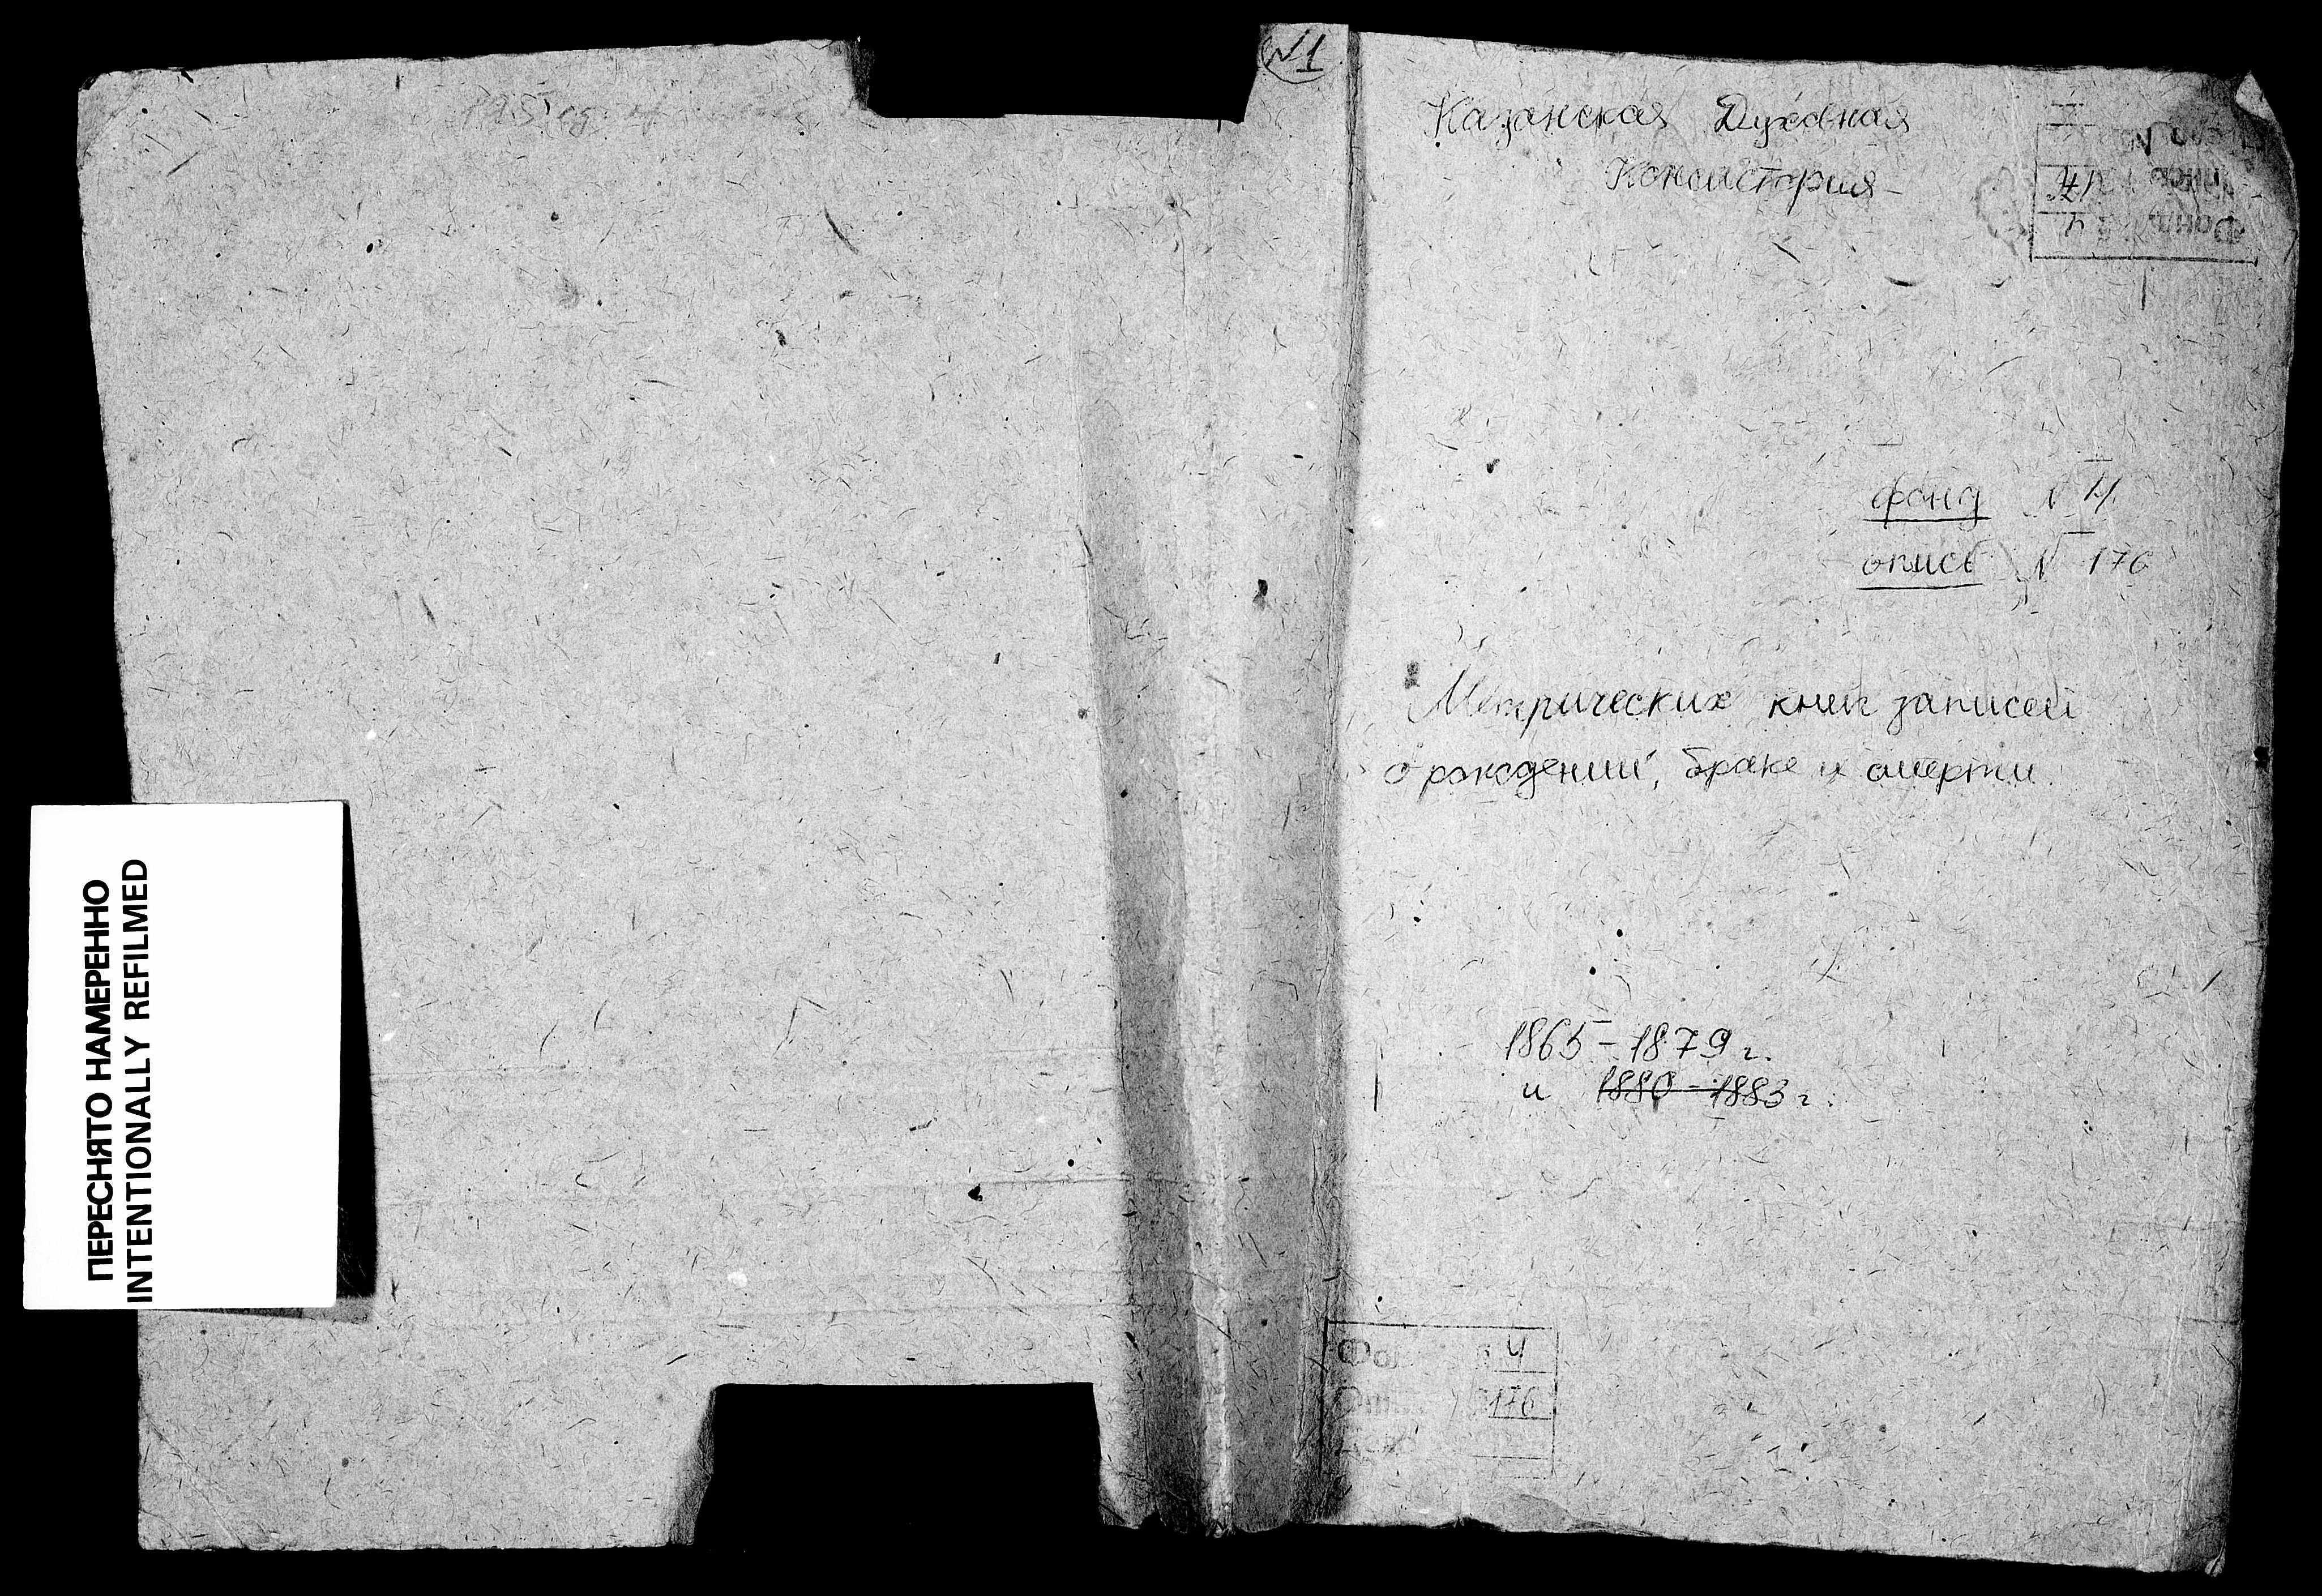 №1
Казанская Духовная
Консистория
фонд № 4
опись № 176
Метрических книг записей
о рождений, браке и смерти
1865-1879 г.
и 1880-1883 г.
4
176
Фонд 4
ПЕРЕСНЯТО НАМЕРЕННО
INTENTIONALLY REFILMED